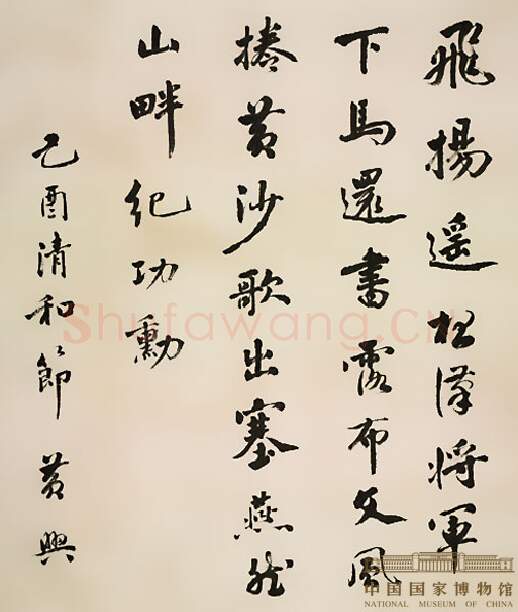 飛揚遥松漢將軍
下馬還書露布文風
捲黄沙歌出塞燕然
山畔纪功勳
己酉清和節 黄興
Shufawang.CN
中国国家博物馆
NATIONAL MUSEUM OF CHINA